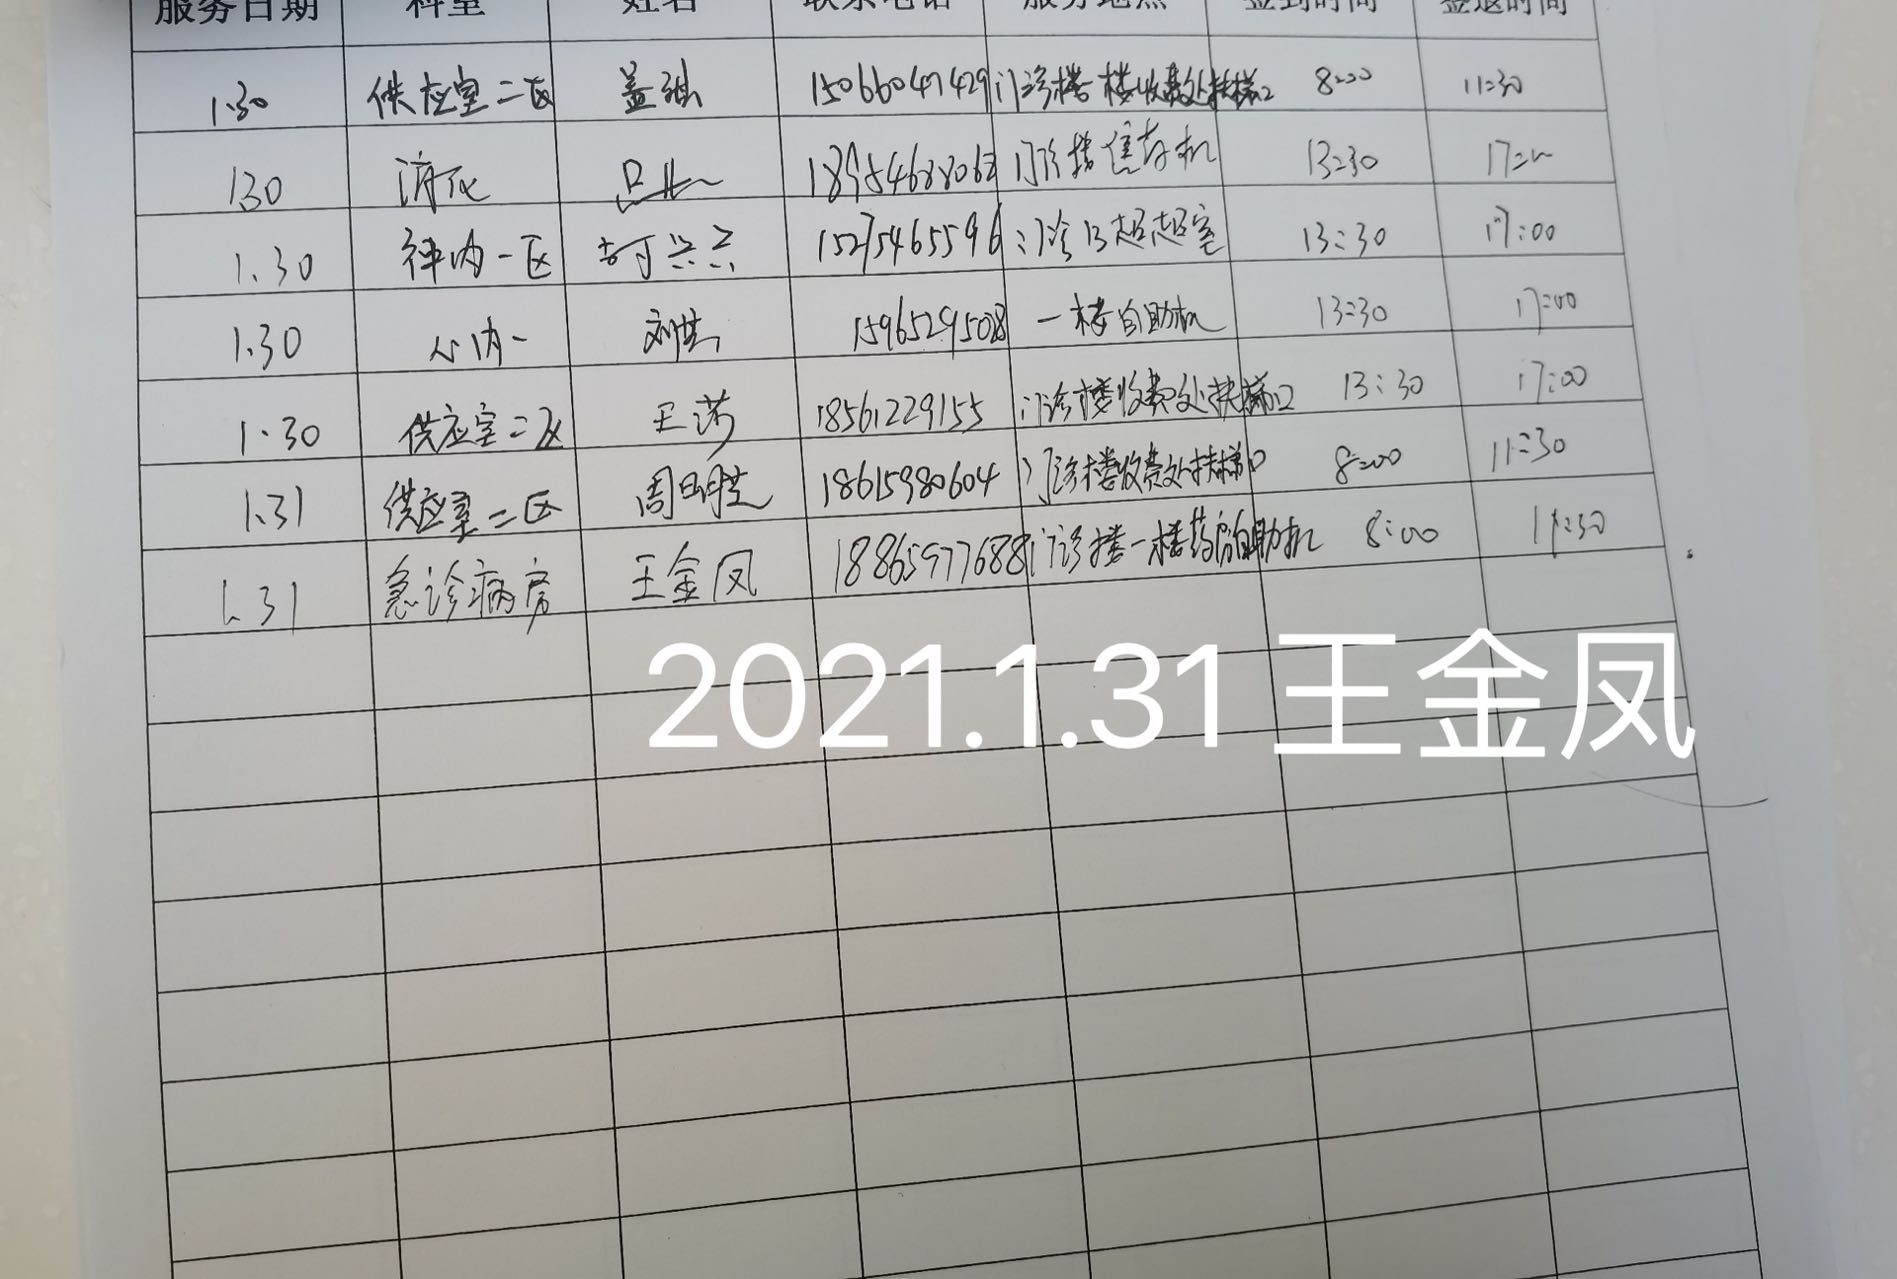 服务日期 科室 姓名 联系电话 服务地点 签到时间 签退时间
1.30 供应室二区 盖 15066047429 门诊楼一楼收费处扶梯口 8:00 11:30
1.30 消化 门诊楼售药机 13:30 17:
1.30 神内一区 15275465596 门诊B超超室 13:30 17:00
1.30 心内一 刘 15965295028 一楼自助机 13:30 17:00
1.30 供应室二区 王 18561229155 门诊楼收费处扶梯口 13:30 17:00
1.31 供应室二区 周明芝 18615980604 门诊楼收费处扶梯口 8:00 11:30
1.31 急诊病房 王金凤 18865977688 门诊楼一楼药房自助机 8:00 11:30
2021.1.31 王金凤